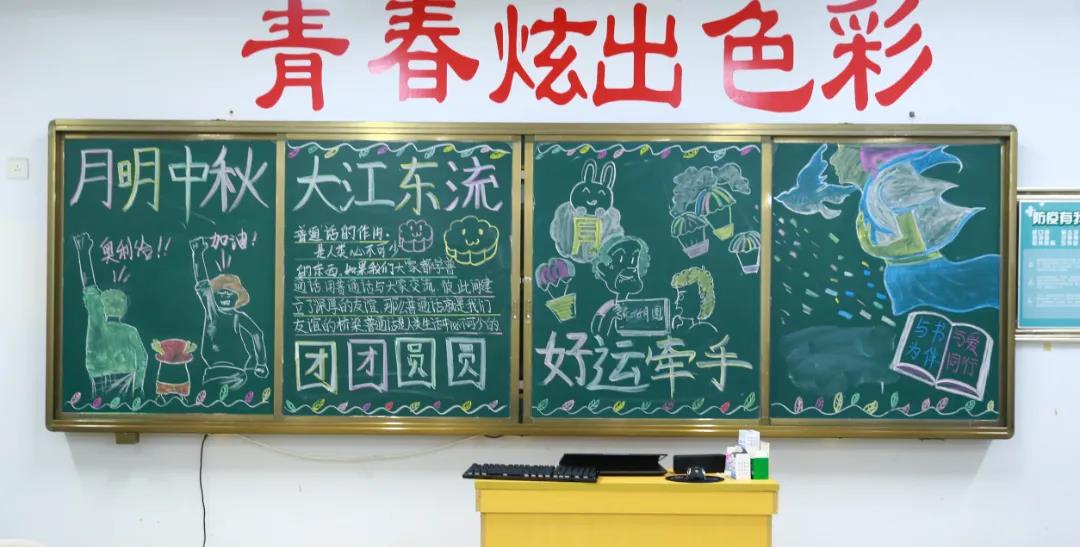 青春炫出色彩
月明中秋
奥利给!!
加油!
大江东流
普通话的作用.
是人类心不可少
的东西,如果我们大家都学普
通话,用普通话与大家交流,彼此间建
立了深厚的友谊,那么普通话就是我们
友谊的桥梁,普通话是人类生活中必不可少的
团团圆圆
月
好运牵手
与书
为伴
与爱
同行
防疫有我